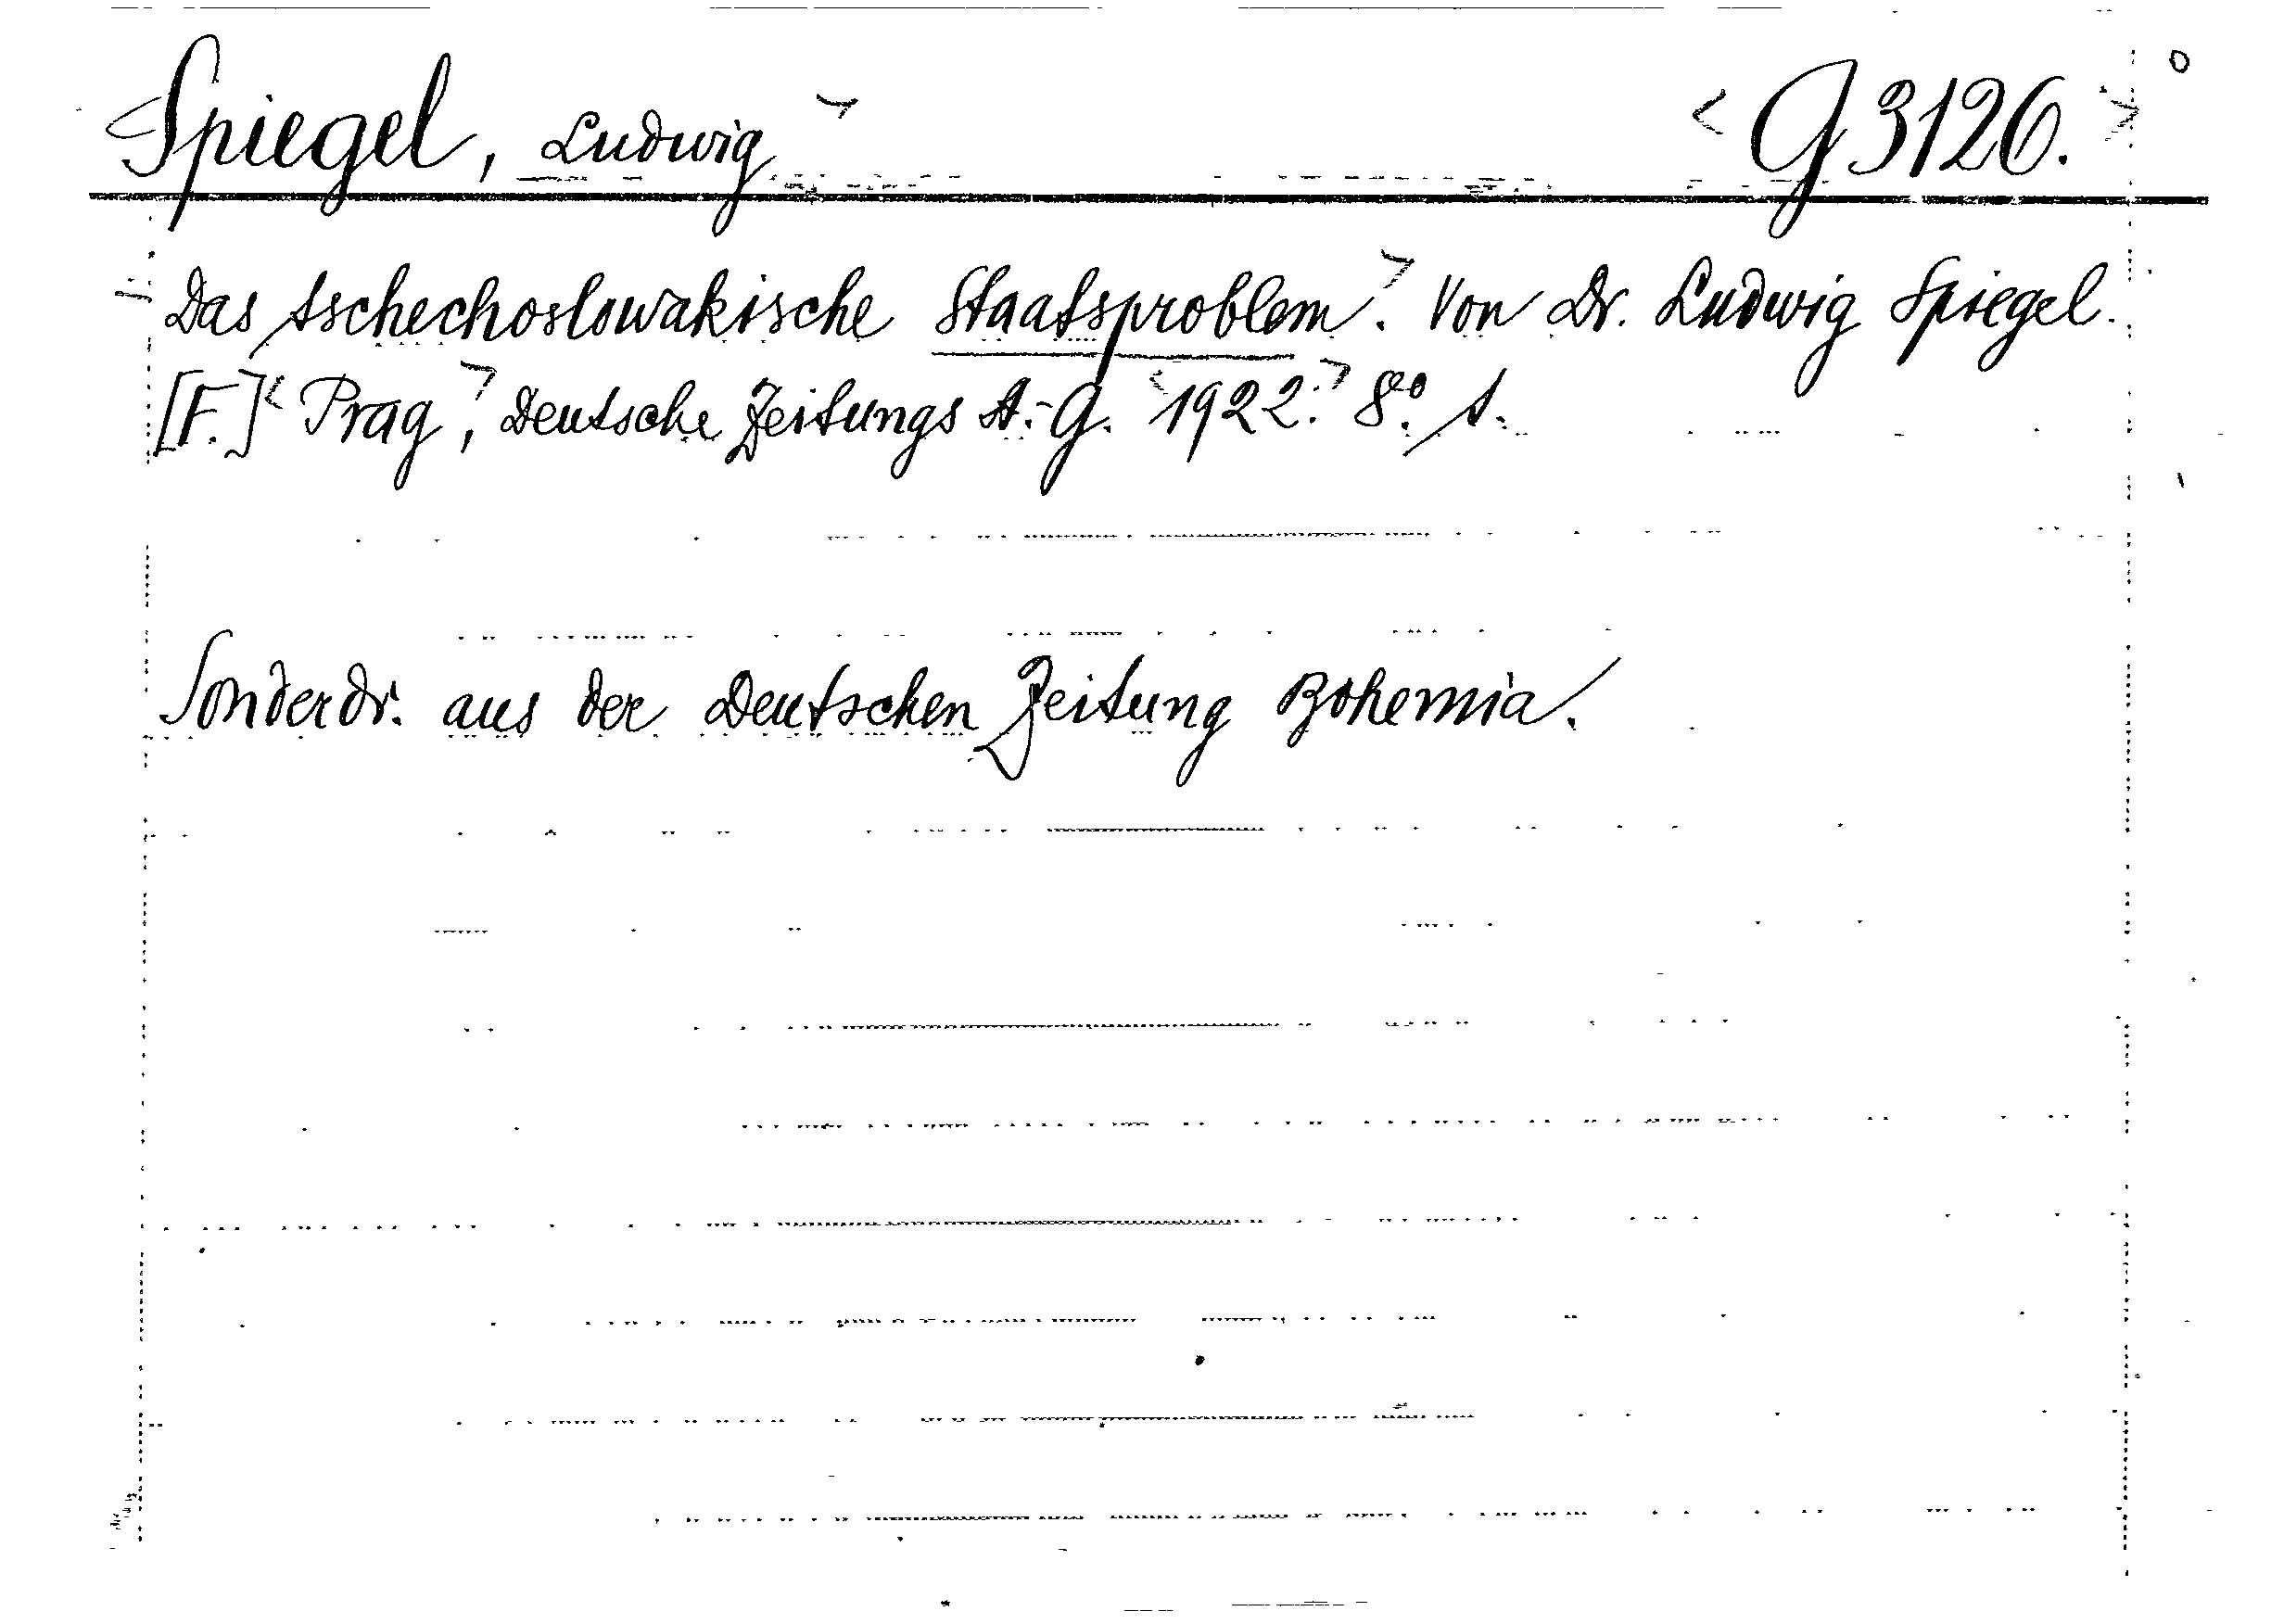 <Spiegel, Ludwig> <G 3126.>
Das tschechoslowakische Staatsproblem.> Von Dr. Ludwig Spiegel.
[F.] <Prag>, Deutsche Zeitungs A.-G. <1922.> 8o. s.
Sonderdr. aus der Deutschen Zeitung Bohemia.